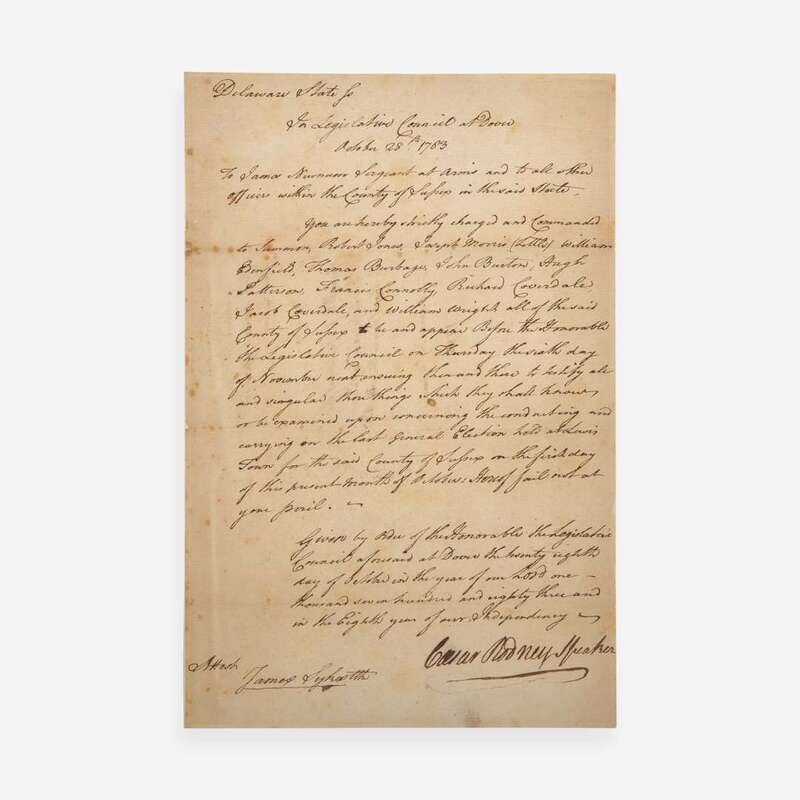 Delaware State ss
In Legislative Council at Dover
October 28th 1783
To James Newnum Sergeant at Arms and to all other
officers within the County of Sussex in the said State
You are hereby strictly charged and Commanded
to Summon, Robert Jones, Joseph Morris (Little) William
Edenfield, Thomas Burbage, John Burton, Hugh
Patterson, Francis Connolly, Richard Coverdale
Jacob Coverdale, and William Wright all of the said
County of Sussex to be and appear Before the Honorable
the Legislative Council on Thursday the sixth day
of November next ensuing then and there to testify all
and singular those things which they shall know
or be examined upon concerning the conducting and
carrying on the last General Election held at Lewis
Town for the said County of Sussex on the first day
of this present Month of October: Hereof fail not at
your peril.
Given by Order of the Honorable the Legislative
Council aforesaid at Dover the twenty eighth
day of October in the year of our Lord one
thousand seven hundred and eighty three and
in the Eighth year of our Independency
Cæsar Rodney Speaker
Attest
James Sykes